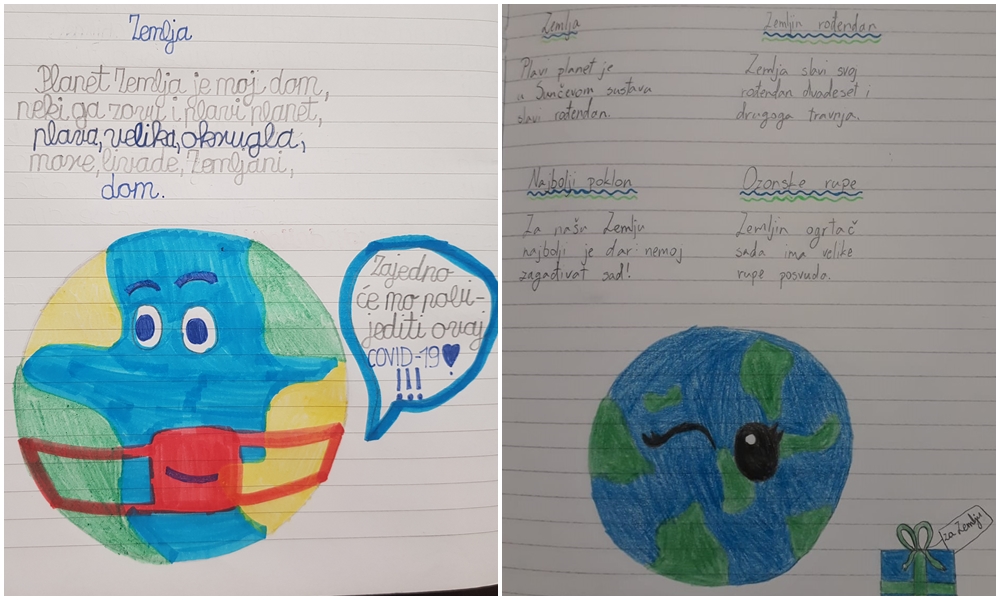 Zemlja
Planet Zemlja je moj dom,
neki ga zovu i plavi planet,
plava, velika, okrugla,
more, livade, Zemljani,
dom.
Zajedno
će mo pobi-
jediti ovaj
COVID-19
!!!
Zemlja
Plavi planet je
u Sunčevom sustavu
slavi rođendan.
Zemljin rođendan
Zemlja slavi svoj
rođendan dvadeset i
drugoga travnja.
Najbolji poklon
Za našu Zemlju
najbolji je dar: nemoj
zagađivat sad!
Ozonske rupe
Zemljin ogrtač
sada ima velike
rupe posvuda.
za Zemlju